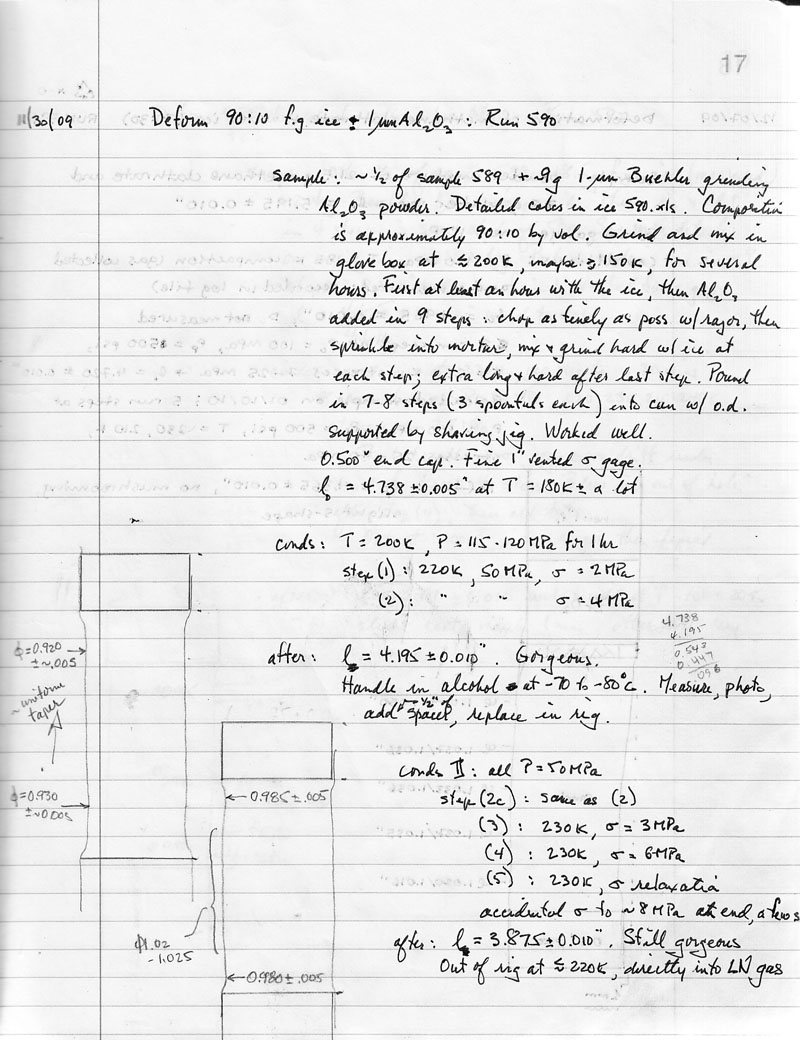 17
11/30/09 Deform 90:10 f.g ice ± 1 µm Al2O3 : Run 590
Sample: ~ 1/2 of sample 589 + ~9g 1-µm Buehler grinding
Al2O3 powder. Detailed calcs in ice 590.xls. Composition
is approximately 90:10 by vol. Grind and mix in
glove box at ≲ 200K, maybe ≳ 150K, for several
hours. First at least an hour with the ice, then Al2O3
added in 9 steps : chop as finely as poss w/ razor, then
sprinkle into mortar, mix + grind hard w/ ice at
each step; extra long + hard after last step. Pound
in 7-8 steps (3 spoonfuls each) into can w/ o.d.
supported by shaving jig. Worked well.
0.500" end cap. Fine 1" vented σ gage.
l0 = 4.738 ± 0.005" at T = 180K ± a lot
conds: T = 200K, P = 115-120 MPa for 1 hr
step (1) : 220K, 50 MPa, σ = 2 MPa
(2) : " " σ = 4 MPa
4.738
4.195
0.543
0.447
.096
after: l = 4.195 ± 0.010". Gorgeous.
Handle in alcohol at -70 to -80°C. Measure, photo,
add ~ 1/2" of spacer, replace in rig.
ϕ=0.920
± ~.005
~ uniform
taper
ϕ=0.930
± ~0.005
conds II : all P = 50 MPa
step (2c) : same as (2)
(3) : 230K, σ = 3 MPa
(4) : 230K, σ = 6 MPa
(5) : 230K, σ relaxation
accidental σ to ~8 MPa at end, a few s
after: l = 3.875 ± 0.010". Still gorgeous
Out of rig at ≲ 220K, directly into LN gas
0.985 ± .005
ϕ1.02
-1.025
0.980 ± .005